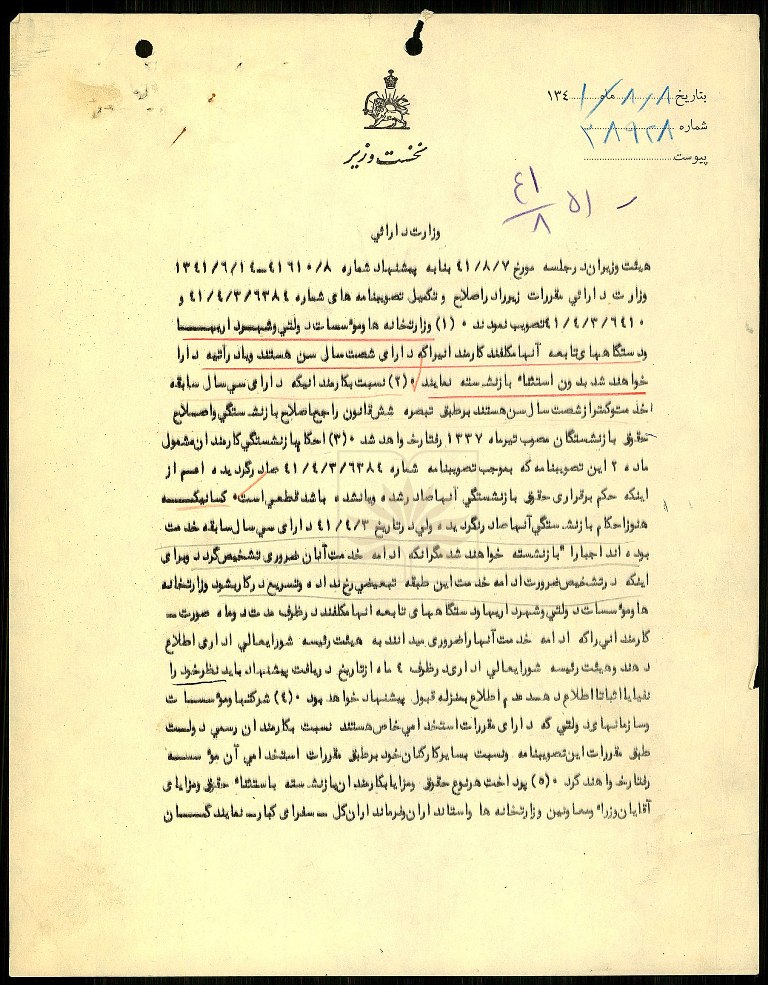 بتاریخ ۸/۸ ماه ۱۳۴۱
شماره ۳۸۹۲۸
پیوست
نخست وزیر
۴۱/۸ ۵۱ –
وزارت دارائي
هیئت وزیران در جلسه مورخ ۴۱/۸/۷ بنا به پیشنهاد شماره ۴۱۶۱۰/۸ــ۱۳۴۱/۶/۱۴
وزارت دارائي مقررات زیر را در اصلاح و تکمیل تصویبنامه های شماره ۴۱/۴/۳/۶۳۸۴ و
۴۱/۴/۳/۶۴۱۰ تصویب نمودند ۰ (۱) وزارتخانه ها و مؤسسات دولتي و شهرداریها
و دستگاههای تابعه آنها مکلفند کارمندانیرا که دارای شصت سال سن هستند و یا در آتیه دارا
خواهند شد بدون استثناء بازنشسته نمایند ۰ (۲) نسبت بکارمندانیکه دارای سي سال سابقه
خدمت و کمتر از شصت سال سن هستند بر طبق تبصره شش قانون راجع باصلاح بازنشستگي و اصلاح
حقوق بازنشستگان مصوب تیرماه ۱۳۳۷ رفتار خواهد شد ۰ (۳) احکام بازنشستگي کارمندان مشمول
ماده ۲ این تصویبنامه که بموجب تصویبنامه شماره ۴۱/۴/۳/۶۳۸۴ صادر گردیده اعم از
اینکه حکم برقراری حقوق بازنشستگي آنها صادر شده و یا نشده باشد قطعي است۰ کسانیکه
هنوز احکام بازنشستگي آنها صادر نگردیده ولي در تاریخ ۴۱/۴/۳ دارای سي سال سابقه خدمت
بوده اند اجبارا" بازنشسته خواهند شد مگر آنکه ادامه خدمت آنان ضروری تشخیص گردد و برای
اینکه در تشخیص ضرورت ادامه خدمت این طبقه تبعیضي رخ نداده و تسریع در کار بشود وزارتخانه
ها و مؤسسات دولتي و شهرداریها و دستگاههای تابعه آنها مکلفند در ظرف مدت دو ماه صورت
کارمنداني را که ادامه خدمت آنها را ضروری میدانند به هیئت رئیسه شورایعالي اداری اطلاع
دهند و هیئت رئیسه شورایعالي اداری در ظرف ۴ ماه از تاریخ دریافت پیشنهاد باید نظر خود را
نفیا یا اثباتا اطلاع دهد عدم اطلاع بمنزله قبول پیشنهاد خواهد بود ۰ (۴) شرکتها و مؤسسات
و سازمانهای دولتي که دارای مقررات استخدامي خاص هستند نسبت بکارمندان رسمي دولت
طبق مقررات این تصویبنامه و نسبت بسایر کارکنان خود بر طبق مقررات استخدامي آن مؤسسه
رفتار خواهند کرد ۰ (۵) پرداخت هر نوع حقوق و مزایا بکارمندان بازنشسته باستثناء حقوق و مزایای
آقایان وزراء و معاونین وزارتخانه ها و استانداران و فرمانداران کل ــ سفرای کبار ــ نمایندگان